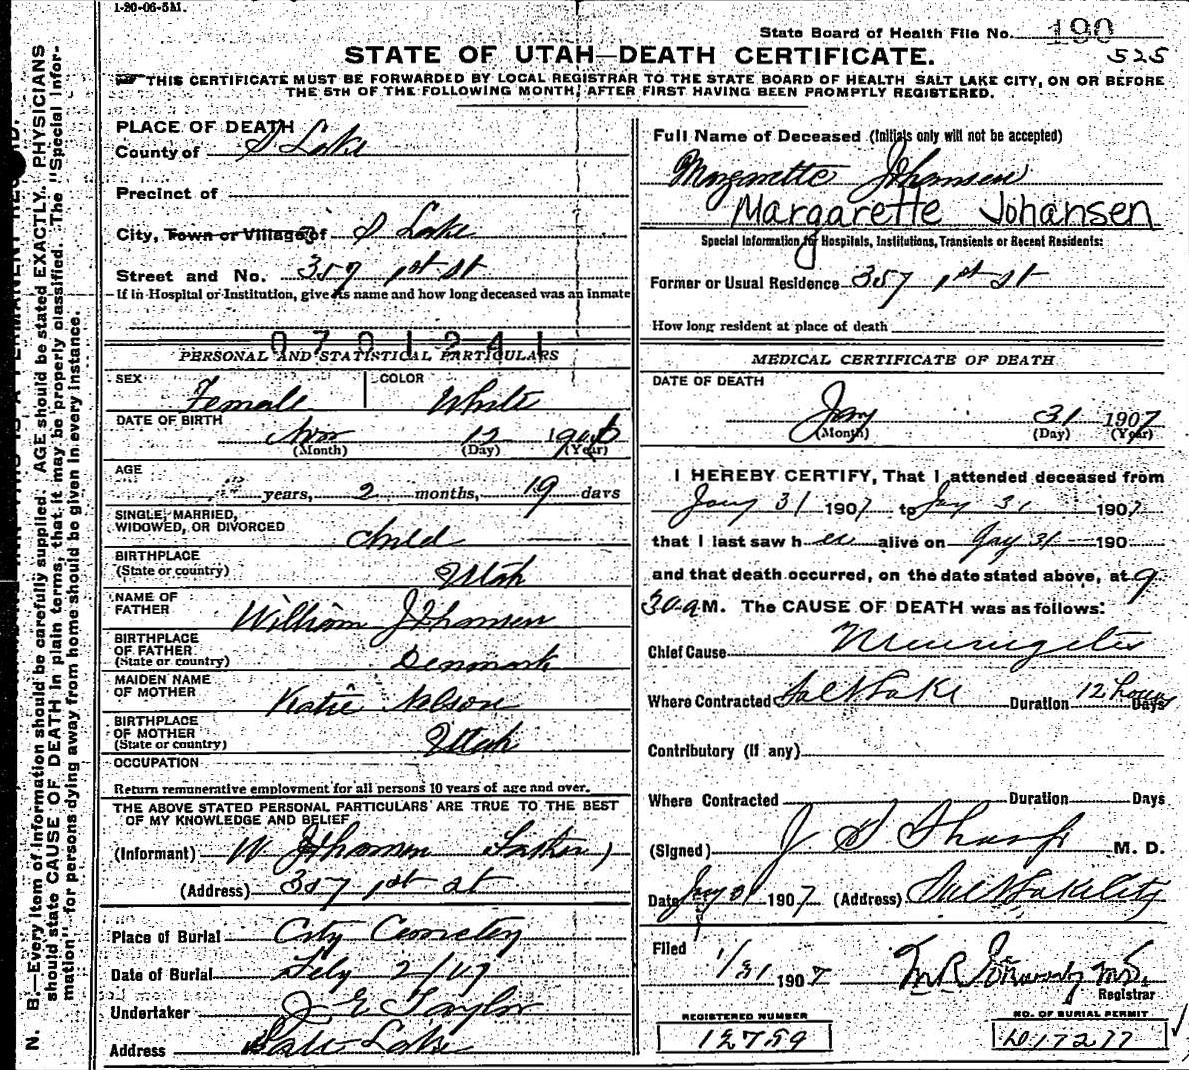 1-20-06-5M.
State Board of Health File No. 190
525
STATE OF UTAH—DEATH CERTIFICATE.
THIS CERTIFICATE MUST BE FORWARDED BY LOCAL REGISTRAR TO THE STATE BOARD OF HEALTH SALT LAKE CITY, ON OR BEFORE
THE 5TH OF THE FOLLOWING MONTH, AFTER FIRST HAVING BEEN PROMPTLY REGISTERED.
PLACE OF DEATH
County of S Lake
Precinct of
City, Town or Village of S Lake
Street and No. 357 1st St
If in Hospital or Institution, give its name and how long deceased was an inmate
0701241
PERSONAL AND STATISTICAL PARTICULARS
SEX Female COLOR White
DATE OF BIRTH
Nov 12 1906
(Month) (Day) (Year)
AGE
years, 2 months, 19 days
SINGLE, MARRIED,
WIDOWED, OR DIVORCED child
BIRTHPLACE
(State or country) Utah
NAME OF
FATHER William Johansen
BIRTHPLACE
OF FATHER
(State or country) Denmark
MAIDEN NAME
OF MOTHER Katie Nelson
BIRTHPLACE
OF MOTHER
(State or country) Utah
OCCUPATION
Return remunerative employment for all persons 10 years of age and over.
THE ABOVE STATED PERSONAL PARTICULARS ARE TRUE TO THE BEST
OF MY KNOWLEDGE AND BELIEF
(Informant) W Johansen Father)
(Address) 357 1st st
Place of Burial City Cemetery
Date of Burial Feby 2/07
Undertaker J E Taylor
Address Salt Lake
Full Name of Deceased (Initials only will not be accepted)
Margarette Johansen
Margarette Johansen
Special Information for Hospitals, Institutions, Transients or Recent Residents:
Former or Usual Residence 357 1st St
How long resident at place of death
MEDICAL CERTIFICATE OF DEATH
DATE OF DEATH
Jany 31 1907
(Month) (Day) (Year)
I HEREBY CERTIFY, That I attended deceased from
Jany 31 1907 to Jay 31 1907
that I last saw her alive on Jay 31 190
and that death occurred, on the date stated above, at 9
30 a M. The CAUSE OF DEATH was as follows:
Chief Cause Meningitis
Where Contracted Salt Lake Duration 12 hours Days
Contributory (If any)
Where Contracted Duration Days
(Signed) J S Sharp M. D.
Date Jany 31 1907 (Address) Salt Lake City
Filed
1/31 1907
Registrar
REGISTERED NUMBER
12759
NO. OF BURIAL PERMIT
N. B.—Every item of information should be carefully supplied. AGE should be stated EXACTLY. PHYSICIANS
should state CAUSE OF DEATH in plain terms, that it may be properly classified. The "Special Infor-
mation" for persons dying away from home should be given in every instance.